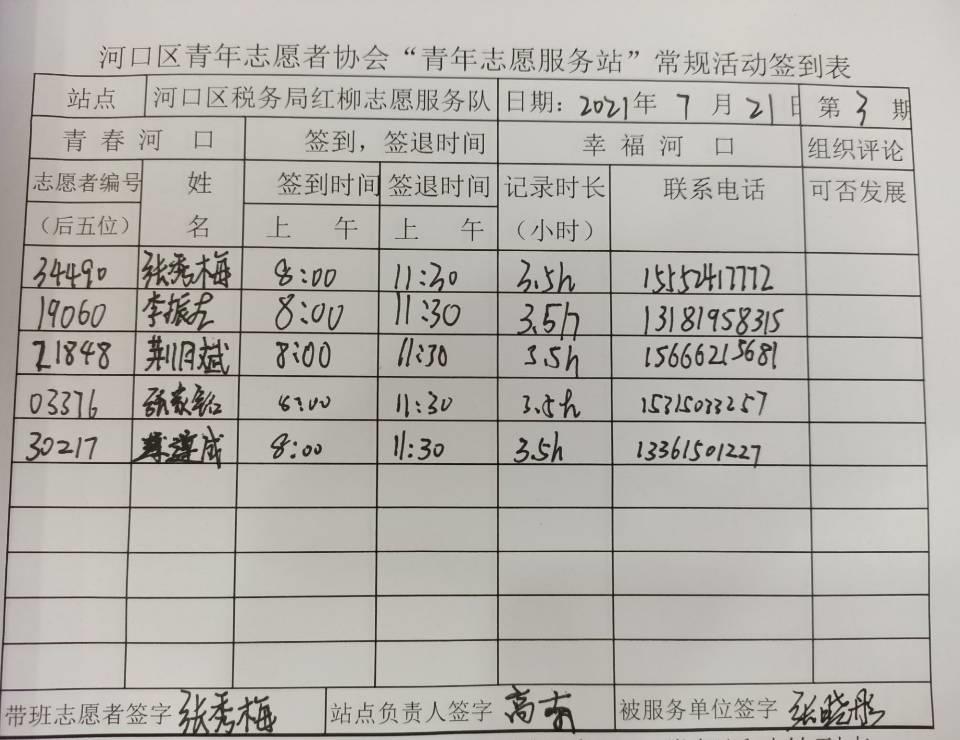 河口区青年志愿者协会“青年志愿服务站”常规活动签到表
站点 河口区税务局红柳志愿服务队 日期：2021年 7 月 21日 第 3 期
青 春 河 口 签到，签退时间 幸 福 河 口 组织评论
志愿者编号 姓 签到时间 签退时间 记录时长 联系电话 可否发展
（后五位） 名 上 午 上 午 （小时）
34490 张秀梅 8:00 11:30 3.5h 15552417772
19060 李振 8:00 11:30 3.5h 13181958315
21848 荆月斌 8:00 11:30 3.5h 15666215681
03376 8:00 11:30 3.5h 15315033257
30217 成 8:00 11:30 3.5h 13361501227
带班志愿者签字 张秀梅 站点负责人签字 高 被服务单位签字 张晓彤